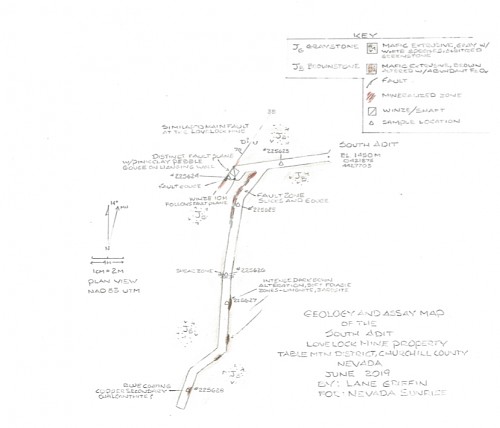 KEY
GRAYSTONE
MAFIC EXTRUSIVE, GRAY W/
WHITE SPECKS
BROWNSTONE
MAFIC EXTRUSIVE, BROWN
ALTERED W/ABUNDANT
FAULT
MINERALIZED ZONE
WINZE/SHAFT
SAMPLE LOCATION
SIMILAR TO MAIN FAULT
AT THE LOVELOCK MINE
SOUTH ADIT
EL 1450M
DISTINCT FAULT PLANE
W/PINK CLAY PEBBLE
GOUGE ON HANGING WALL
#225623
#225624
FAULT GOUGE
WINZE 10M
FOLLOWS FAULT PLANE
FAULT ZONE
SLICKS AND GOUGE
#225625
SHEAR ZONE
#225626
INTENSE DARK BROWN
ALTERATION, SOFT FRIABLE
ZONES - LIMONITE,
#225627
1CM = 2M
PLAN VIEW
NAD 83 UTM
BLUE COATING
COPPER SECONDARY
CHALCANTHITE?
#225628
GEOLOGY AND ASSAY MAP
OF THE
SOUTH ADIT
LOVELOCK MINE PROPERTY
TABLE MTN DISTRICT, CHURCHILL COUNTY
NEVADA
JUNE 2019
BY: LANE GRIFFIN
FOR: NEVADA SUNRISE